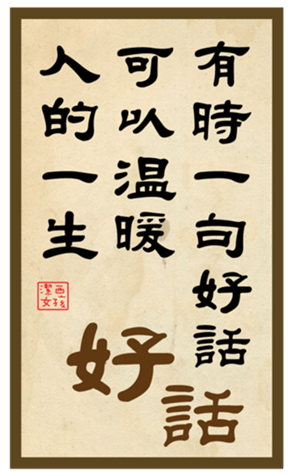 有時一句好話
可以溫暖
人的一生
好話